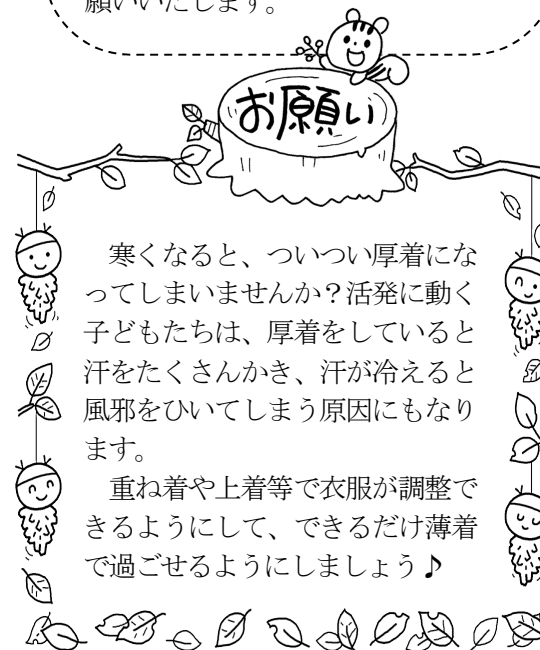 願いいたします。
お願い
　寒くなると、ついつい厚着にな
ってしまいませんか？活発に動く
子どもたちは、厚着をしていると
汗をたくさんかき、汗が冷えると
風邪をひいてしまう原因にもなり
ます。
　重ね着や上着等で衣服が調整で
きるようにして、できるだけ薄着
で過ごせるようにしましょう♪